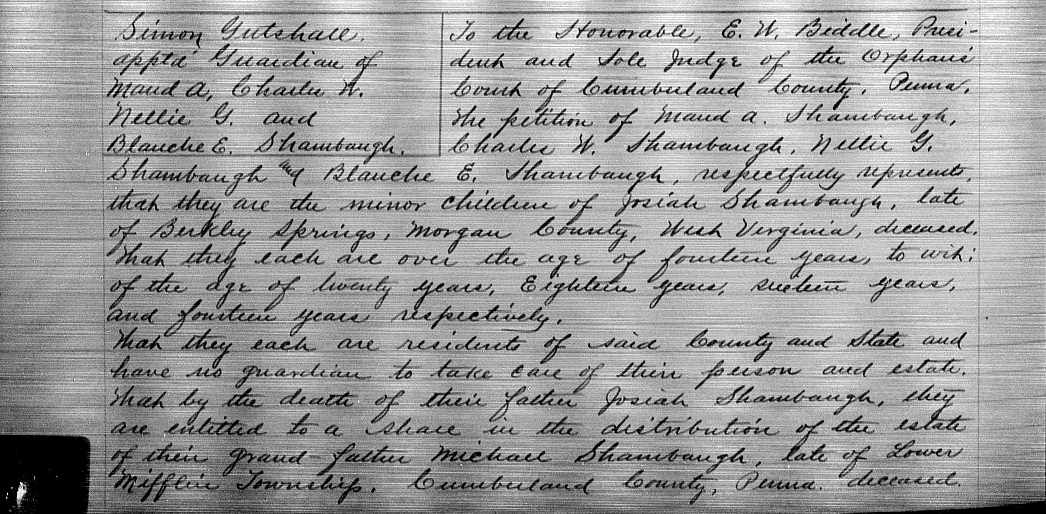 Simon Gutshall.
appt'd Guardian of
Maud A, Charlie W.
Nellie G. and
Blanche E. Shambaugh.
To the Honorable, E. W. Biddle, Presi-
dent and Sole Judge of the Orphans'
Court of Cumberland County, Penna,
The petition of Maud A. Shambaugh,
Charles W. Shambaugh, Nellie G.
Shambaugh and Blanche E. Shambaugh, respectfully represents,
that they are the minor children of Josiah Shambaugh, late
of Berkley Springs, Morgan County, West Virginia, deceased.
That they each are over the age of fourteen years, to wit:
of the age of twenty years, Eighteen years, sixteen years,
and fourteen years respectively.
That they each are residents of said County and State and
have no guardian to take care of their person and estate.
That by the death of their father Josiah Shambaugh, they
are entitled to a share in the distribution of the estate
of their grand-father Michael Shambaugh, late of Lower
Mifflin Township, Cumberland County, Penna. deceased.